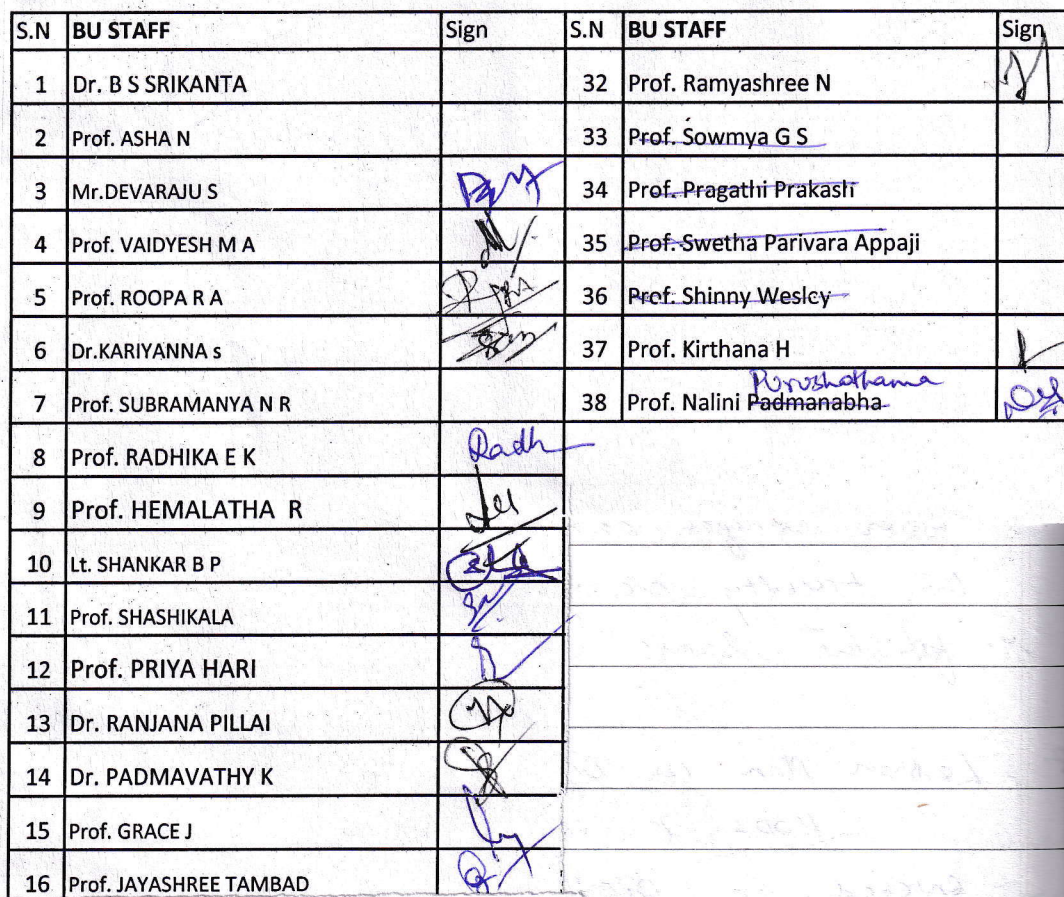 S.N BU STAFF Sign S.N BU STAFF Sign
1 Dr. B S SRIKANTA 32 Prof. Ramyashree N
2 Prof. ASHA N 33 Prof. Sowmya G S
3 Mr.DEVARAJU S 34 Prof. Pragathi Prakash
4 Prof. VAIDYESH M A 35 Prof. Swetha Parivara Appaji
5 Prof. ROOPA R A 36 Prof. Shinny Wesley
6 Dr.KARIYANNA s 37 Prof. Kirthana H
Purushothama
7 Prof. SUBRAMANYA N R 38 Prof. Nalini Padmanabha
8 Prof. RADHIKA E K Radh
9 Prof. HEMALATHA R
10 Lt. SHANKAR B P
11 Prof. SHASHIKALA
12 Prof. PRIYA HARI
13 Dr. RANJANA PILLAI
14 Dr. PADMAVATHY K
15 Prof. GRACE J
16 Prof. JAYASHREE TAMBAD